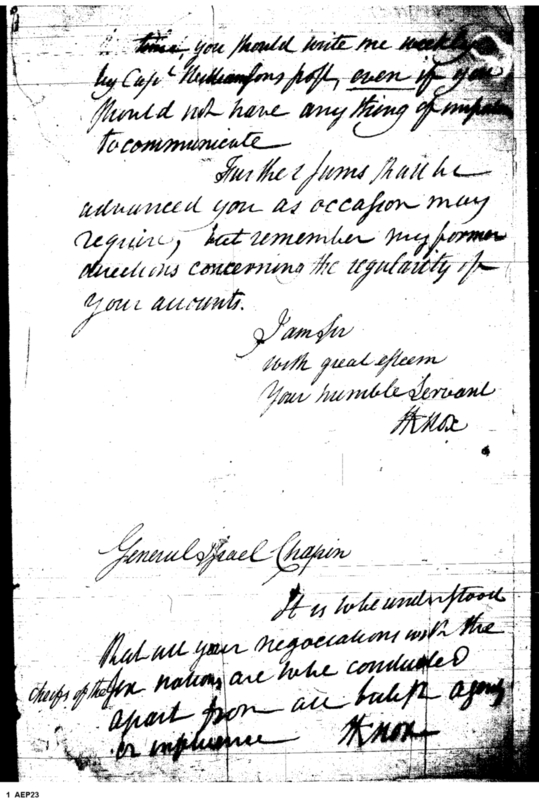 time, you should write me weekly
by Capt Williamsons post, even if you
should not have any thing of
to communicate
Further sums shall be
advanced you as occasion may
require, but remember my former
directions concerning the regularity of
your accounts.
I am Sir
with great esteem
Your humble Servant
HKnox
General Israel Chapin
It is to be understood
that all your negociations with the
chiefs of the six nations, are to be conducted
apart from all british agency
or influence HKnox
1 AEP23